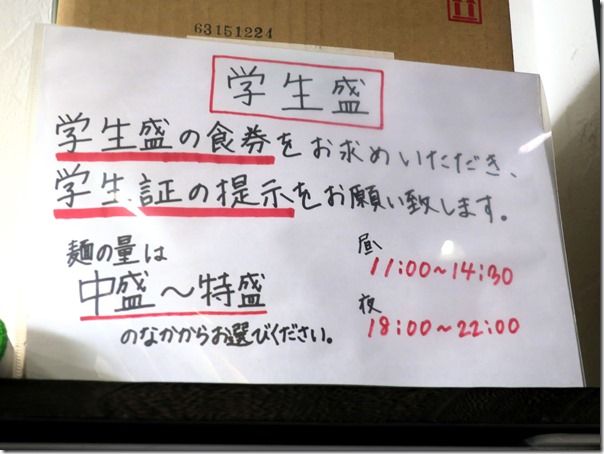 63151224
学生盛
学生盛の食券をお求めいただき、
学生証の提示をお願い致します。
麺の量は
中盛～特盛
のなかからお選びください。
昼
11:00～14:30
夜
18:00～22:00